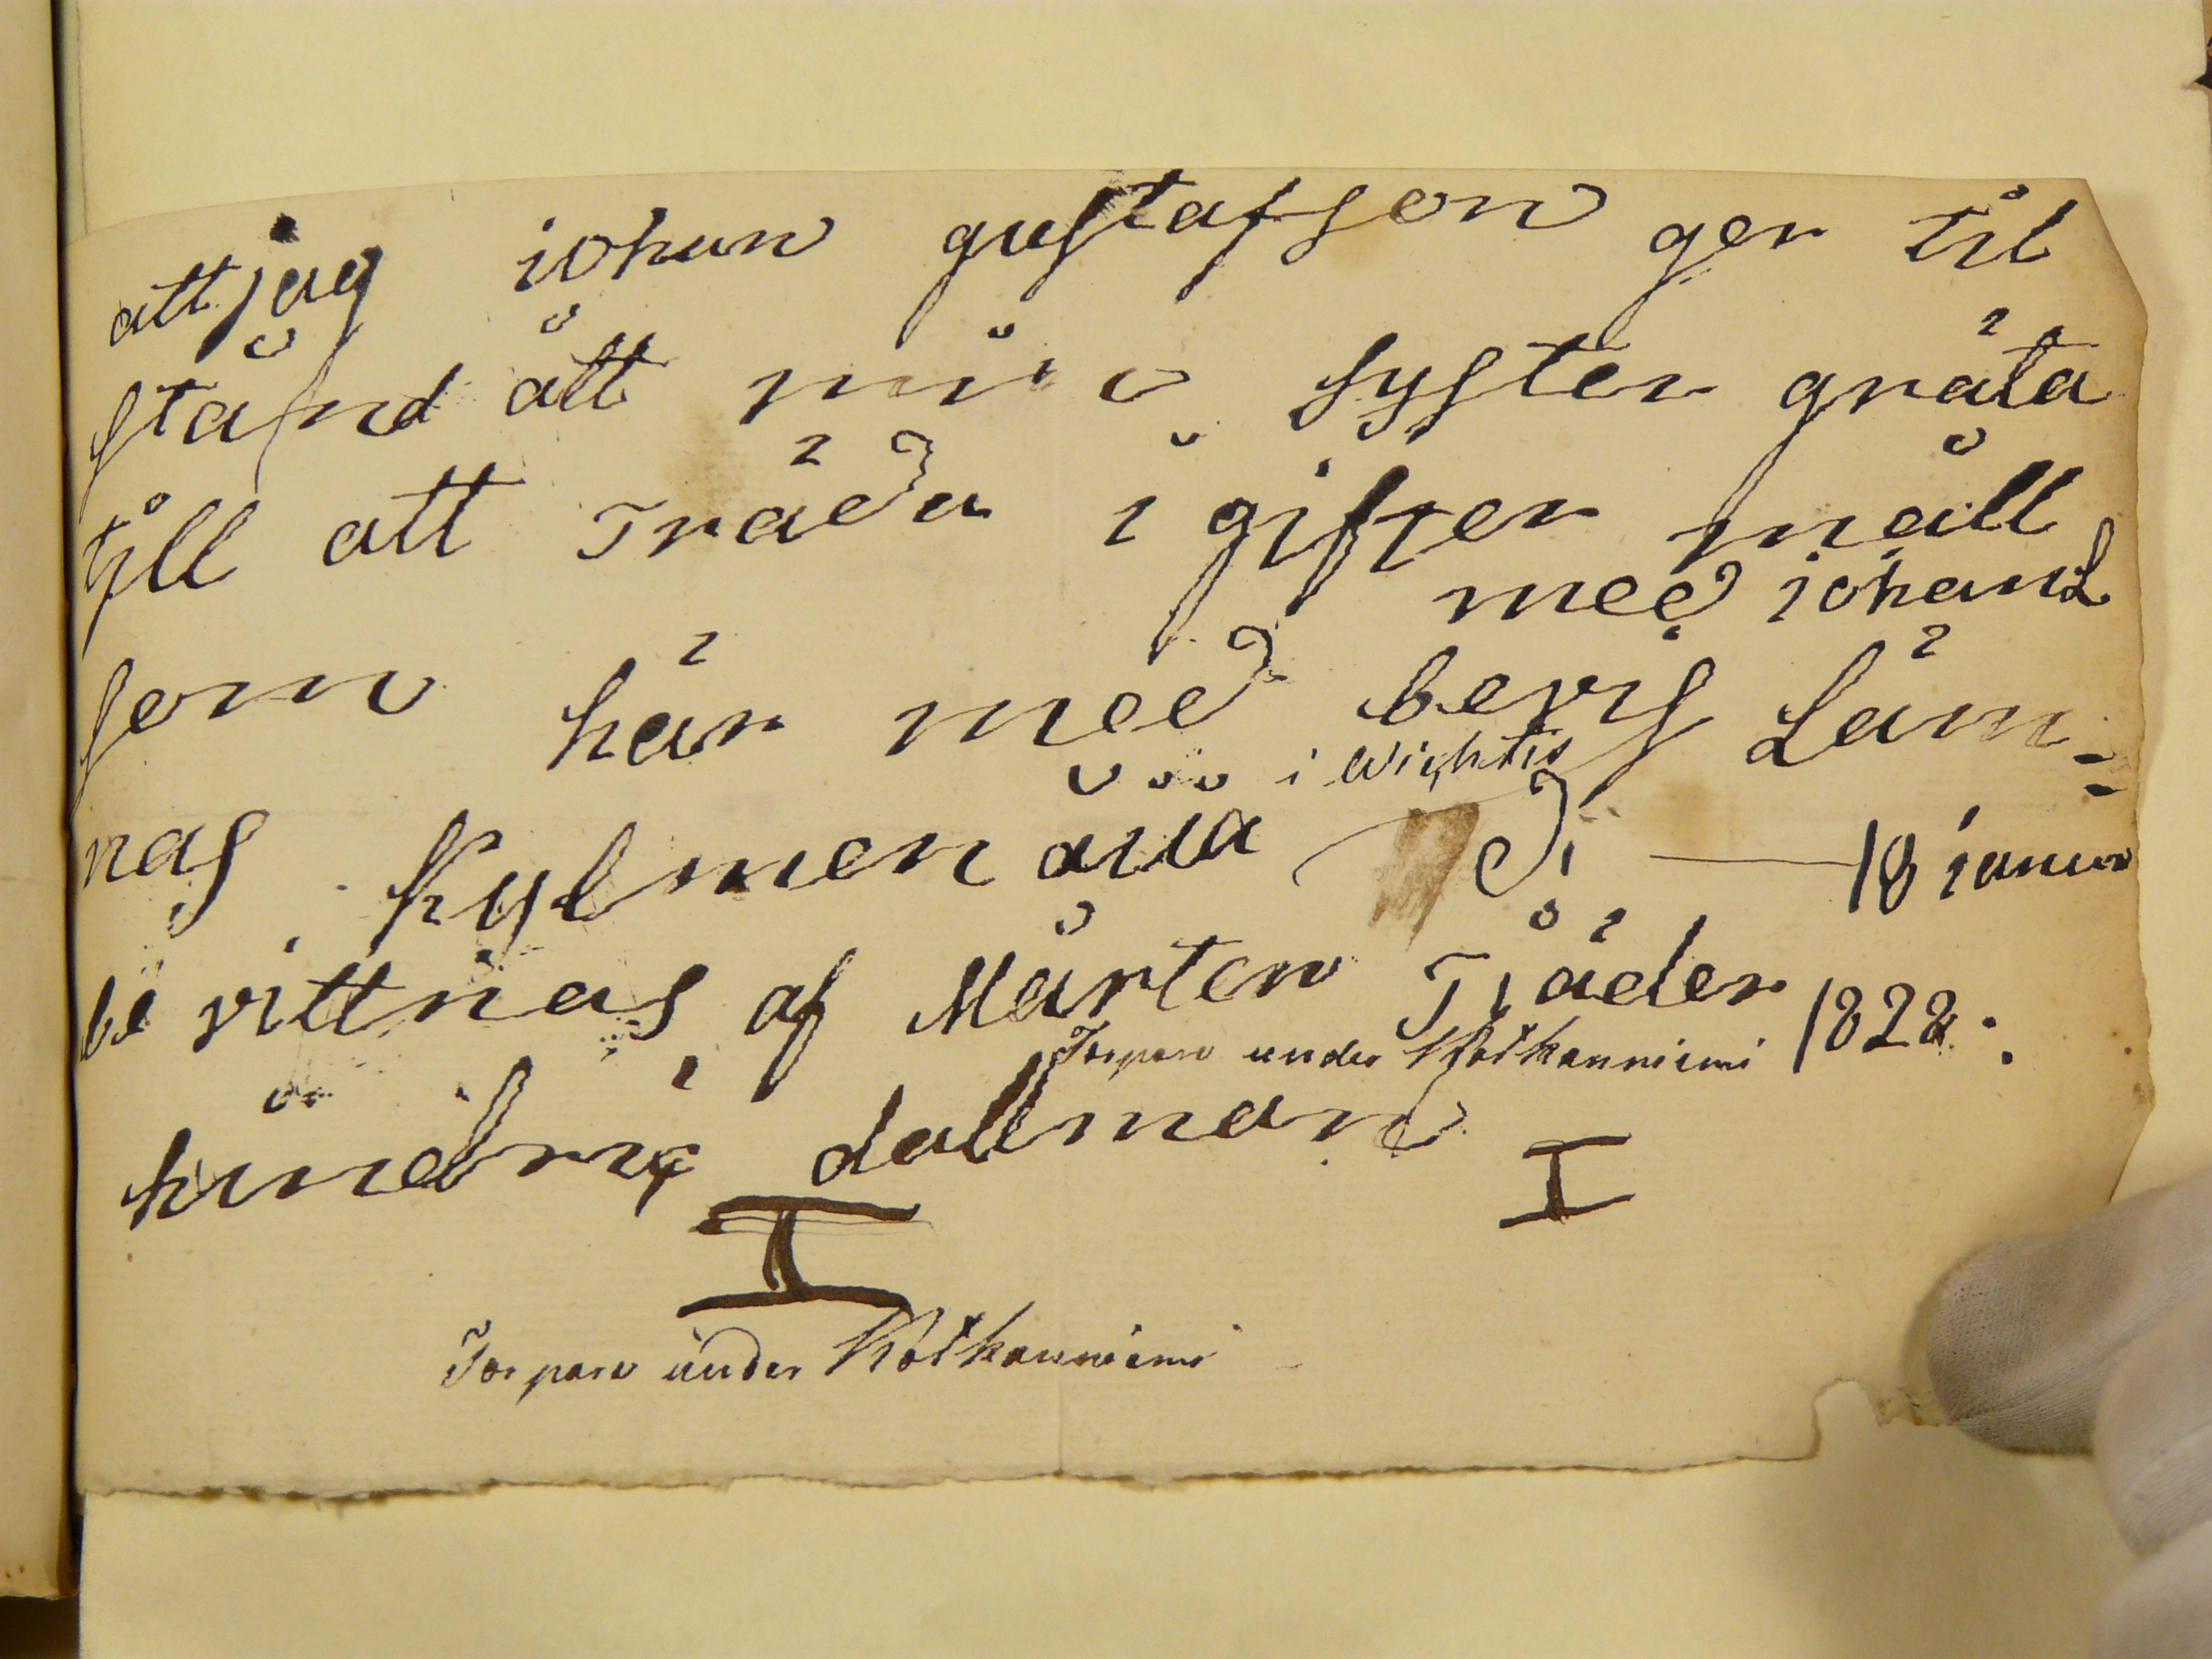 att jag iohan gustafson ger til
stånd att min syster gräta
till att träda i gifter måll
med iohan L
som här med bevis Läm=
nas. Kylmenoiia i Wichtis d. 18 ianua
be vittnas af Mårten Tiäder 1828:
Torpare under Kotkanniemi
hindric dallman
Torpare under Kotkanniemi